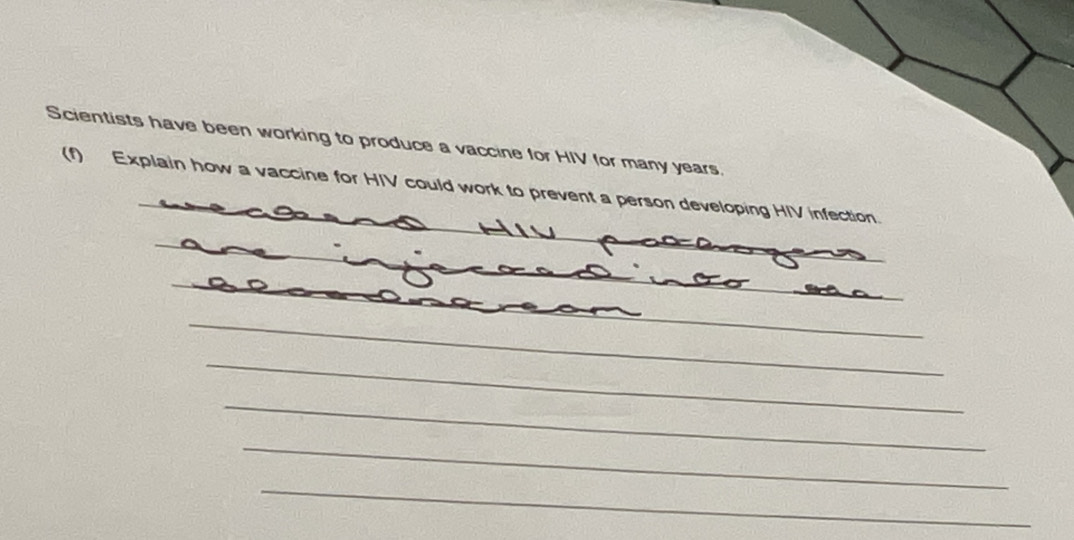 Scientists have been working to produce a vaccine for HIV for many years.
(f) Explain how a vaccine for HIV could work to prevent a person developing HIV infection.
weakened HIV pathogens
are injected into the
bloodstream